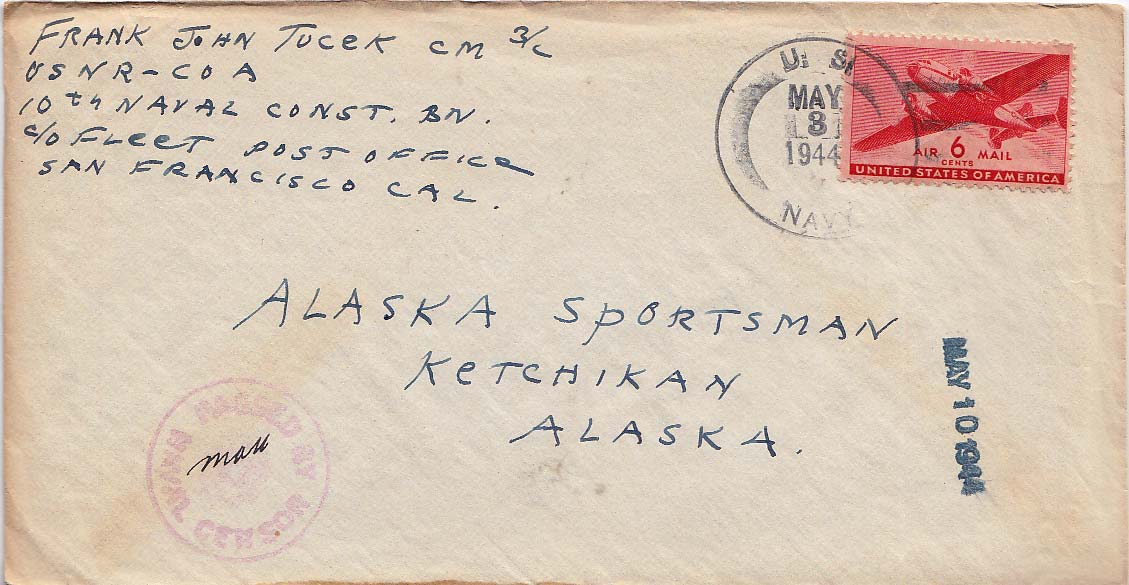 FRANK JOHN TUCEK CM 3/c
USNR - CO A
10th NAVAL CONST. BN.
c/o FLEET POST OFFICE
SAN FRANCISCO CAL.
U. S.
MAY
3
1944
NAVY
AIR 6 MAIL
CENTS
UNITED STATES OF AMERICA
ALASKA SPORTSMAN
KETCHIKAN
ALASKA.
MAY 10 1944
PASSED BY
NAVAL CENSOR